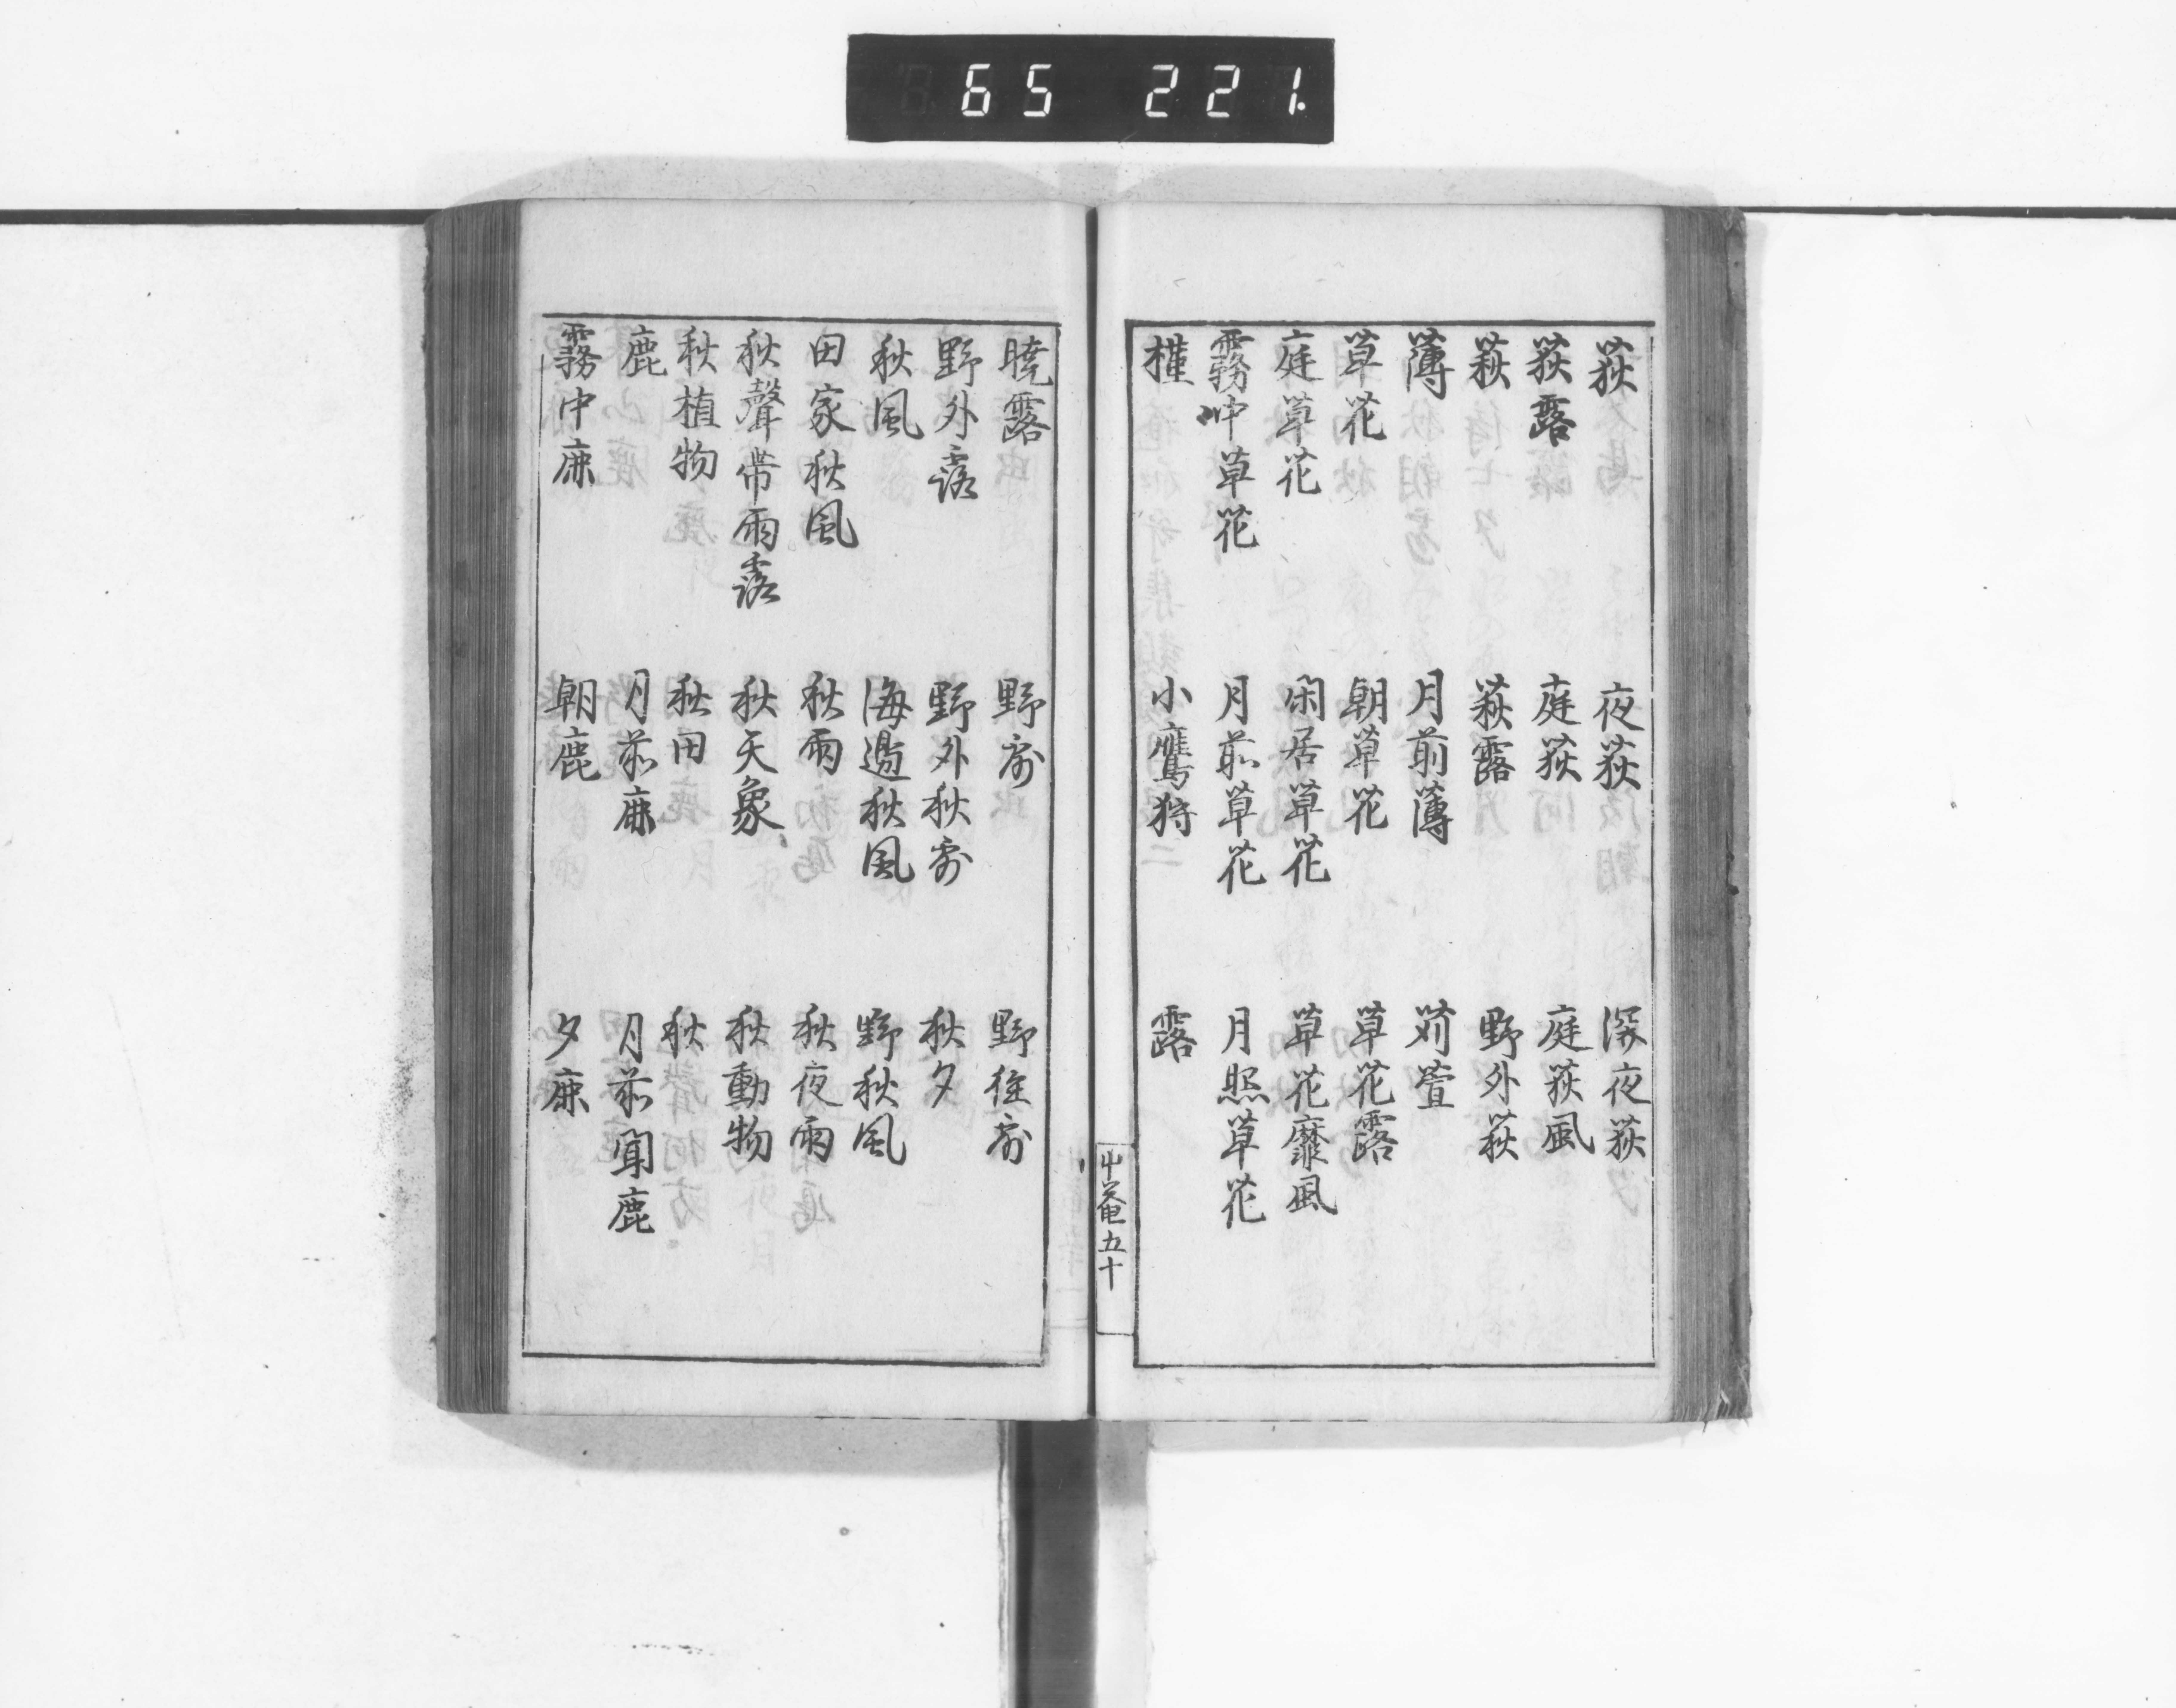 65 221
荻　夜荻　深夜荻
荻露　庭荻　庭荻風
萩　萩露　野外萩
薄　月前薄　苅萱
草花　朝草花　草花露
庭草花　閑居草花　草花靡風
霧中草花　月前草花　月照草花
槿　小鷹狩　露
屮菴五十
暁露　野露　野徑露
野外露　野外秋露　秋夕
秋風　海邊秋風　野秋風
田家秋風　秋雨　秋夜雨
秋聲帯雨露　秋天象　秋動物
秋植物　秋田　秋
鹿　月前鹿　月前聞鹿
霧中鹿　朝鹿　夕鹿